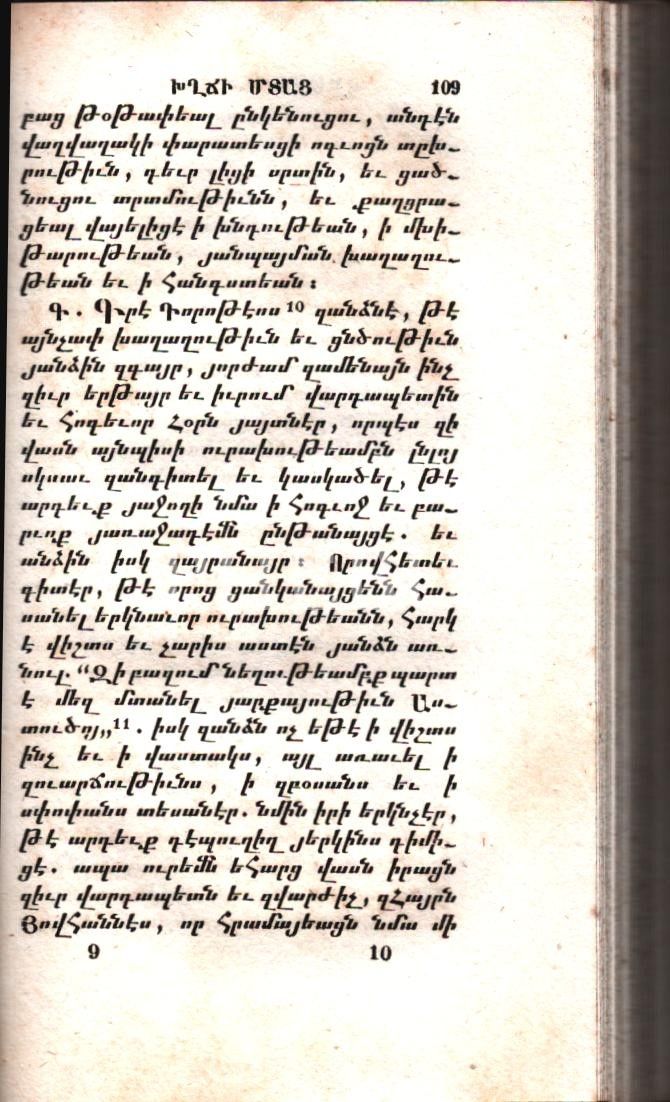 ԽՂՃԻ ՄՏԱՑ 109
բաց թօթափեալ ընկենուցու, անդէն
վաղվաղակի փարատեսցի ոգւոցն տըխ֊
րութիւն, գեւր լիցի սրտին, եւ ցած֊
նուցու տրտմութիւնն, եւ քաղցրա֊
ցեալ վայելիցէ ի խնդութեան, ի մխի֊
թարութեան, յանպայման խաղաղու֊
թեան եւ ի հանգստեան։
Գ. Գիրէ Դորոթէոս¹⁰ զանձնէ, թէ
այնչափ խաղաղութիւն եւ ցնծութիւն
յանձին զգայր, յորժամ զամենայն ինչ
զիւր երթայր եւ իւրում վարդապետին
եւ հոգեւոր Հօրն յայտնէր, որպէս զի
վասն այնպիսի ուրախութեամբն ընլոյ
սկսաւ զանգիտել եւ կասկածել, թէ
արդեւք յաջողի նմա ի հոգւոջ եւ բա֊
րւոք յառաջադէմն ընթանայցէ. եւ
անձին իսկ զայրանայր։ Որովհետեւ
գիտէր, թէ որոց ցանկանայցենն հա֊
սանել երկնաւոր ուրախութեանն, հարկ
է վիշտս եւ չարիս աստէն յանձն առ֊
նուլ. “Զի բազում նեղութեամբք պարտ
է մեզ մտանել յարքայութիւն Աս֊
տուծոյ„¹¹. իսկ զանձն ոչ եթէ ի վիշտս
ինչ եւ ի վաստակս, այլ առաւել ի
զուարճութիւնս, ի զբօսանս եւ ի
սփոփանս տեսանէր. նմին իրի երկնչէր,
թէ արդեւք դէպուղիղ յերկինս դիմի֊
ցէ. ապա ուրեմն եհարց վասն իրացն
զիւր վարդապետն եւ զվարժիչ, զհայրն
Յովհաննէս, որ հրամայեացն նմա մի
9 10